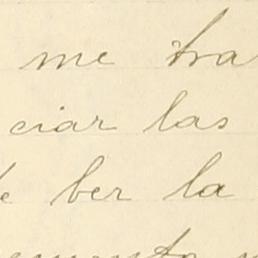 me tra
ciar las
ber la